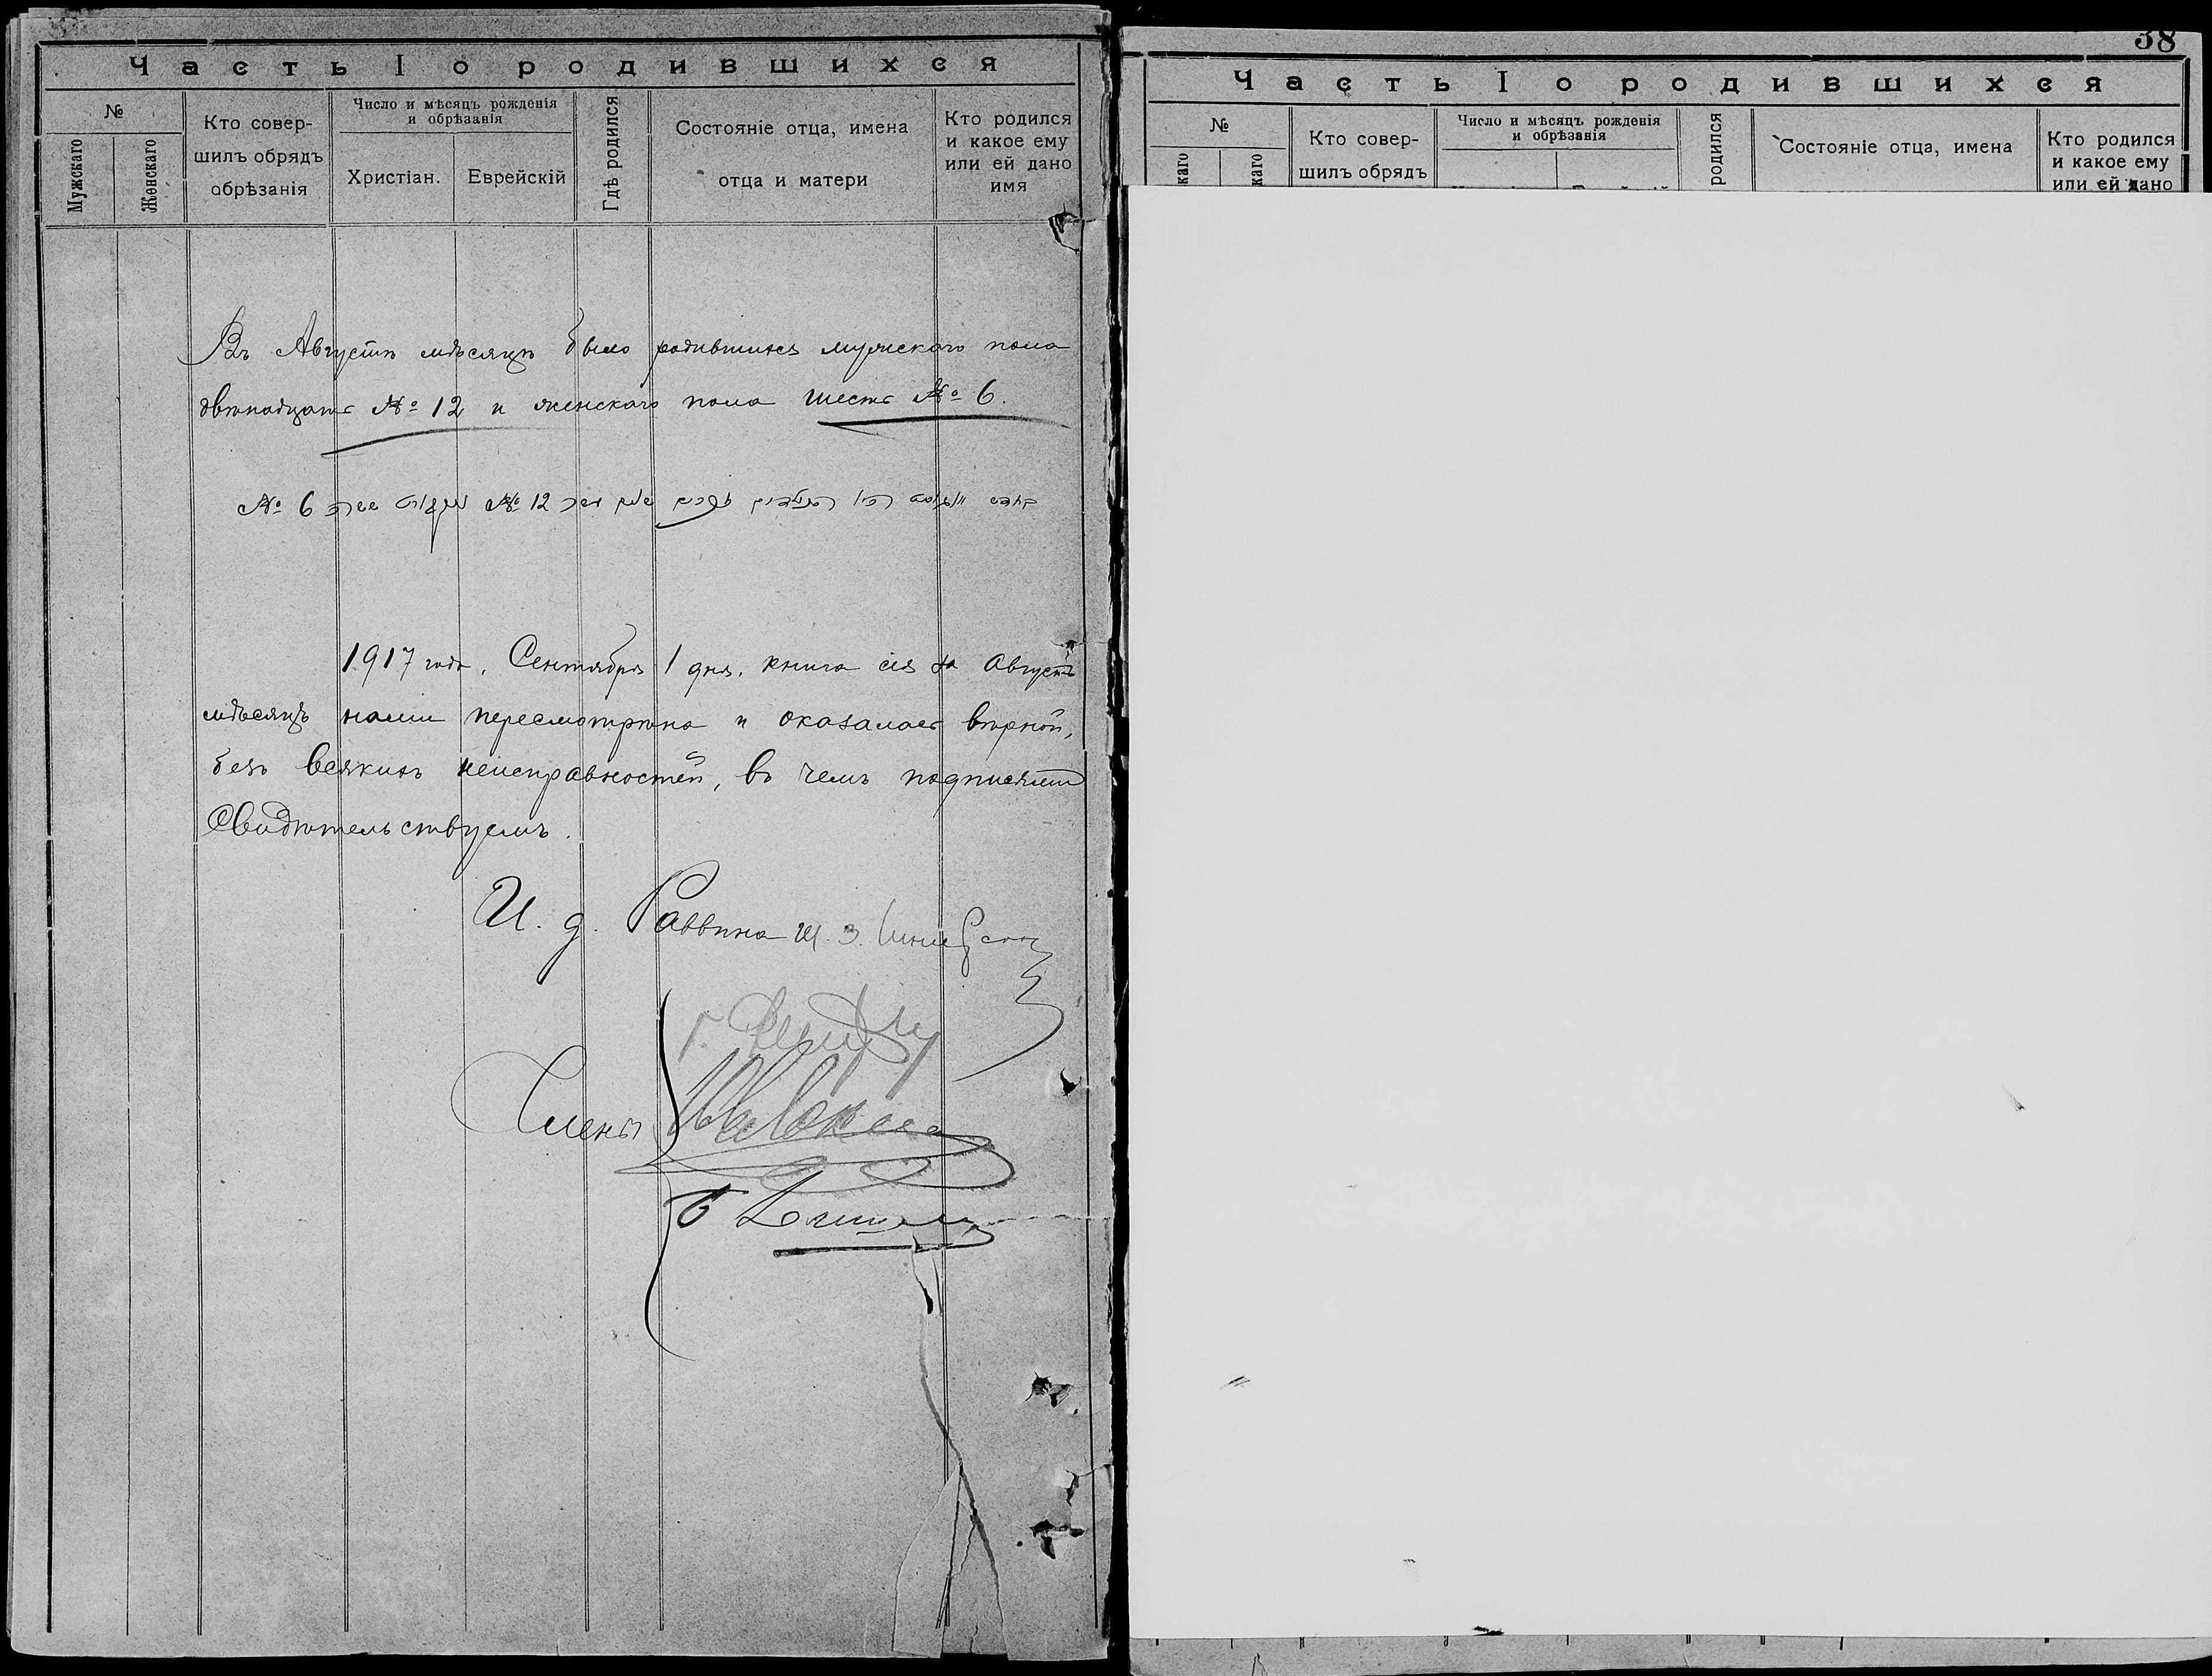 Часть I о родившихся
№
Мужскаго
Женскаго
Кто совер-
шилъ обрядъ
обрѣзанія
Число и мѣсяцъ рожденія
и обрѣзанія
Христіан.
Еврейскій
Гдѣ родился
Состояніе отца, имена
отца и матери
Кто родился
и какое ему
или ей дано
имя
Въ Августѣ мѣсяцѣ было родившихся мужского пола
двѣнадцать № 12 и женскаго пола шесть № 6.
№ 12 № 6
1917 года, Сентября 1 дня, книга сія за Августъ
мѣсяцъ нами пересмотрѣна и оказалась вѣрной,
безъ всякихъ неисправностей, въ чемъ подписями
Свидѣтельствуемъ.
И. д. Раввина
Члены
38
Часть I о родившихся
№
каго
каго
Кто совер-
шилъ обрядъ
Число и мѣсяцъ рожденія
и обрѣзанія
родился
Состояніе отца, имена
Кто родился
и какое ему
или ей дано